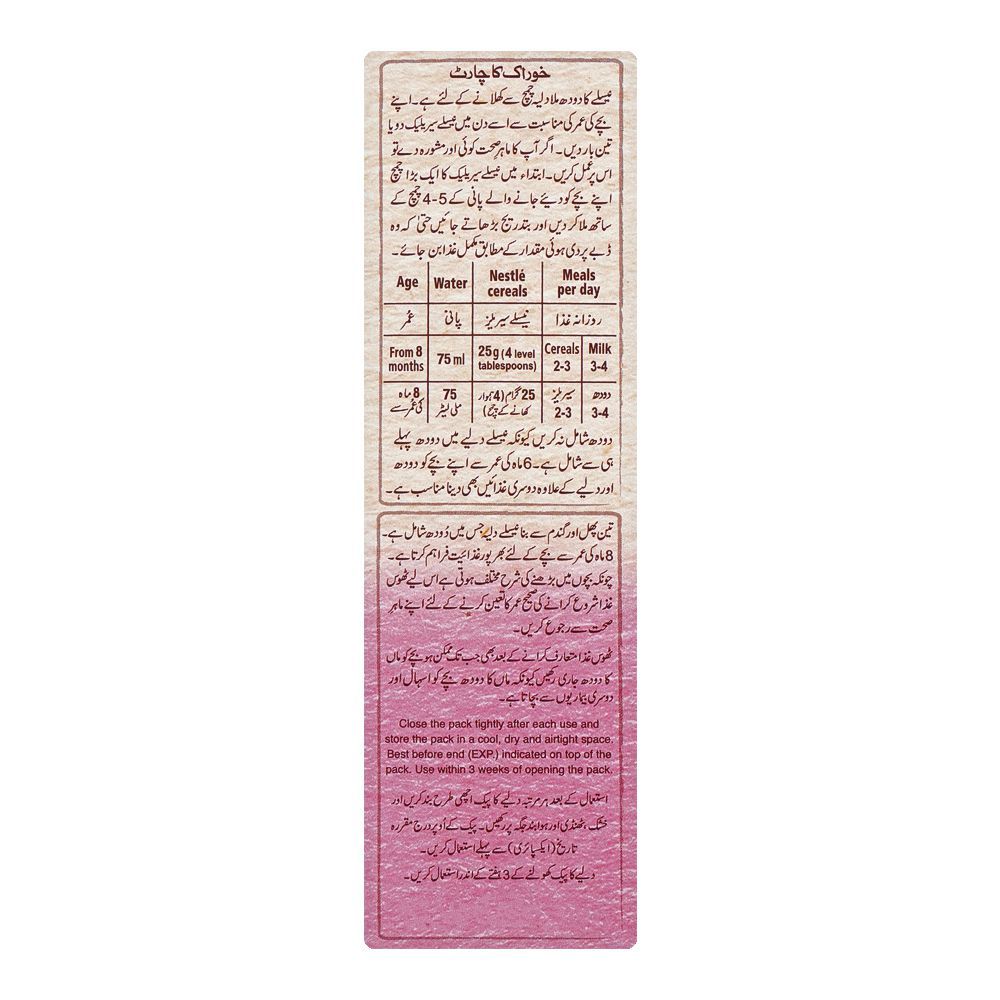 خوراک کا چارٹ
نیسلے کا دودھ ملا دلیہ چمچ سے کھلانے کے لئے ہے۔ اپنے
بچے کی عمر کی مناسبت سے اسے دن میں نیسلے سیریلیک دو یا
تین بار دیں۔ اگر آپ کا ماہر صحت کوئی اور مشورہ دے تو
اس پر عمل کریں۔ ابتداء میں نیسلے سیریلیک کا ایک بڑا چمچ
اپنے بچے کو دیئے جانے والے پانی کے 5-4 چمچ کے
ساتھ ملا کر دیں اور بتدریج بڑھاتے جائیں حتیٰ کہ وہ
ڈبے پر دی ہوئی مقدار کے مطابق مکمل غذا بن جائے۔
Age Water Nestlé cereals Meals per day
عُمر پانی نیسلے سیریلز روزانہ غذا
From 8 months 75 ml 25g (4 level tablespoons) Cereals 2-3 Milk 3-4
8 ماہ کی عُمر سے 75 ملی لیٹر 25 گرام (4 ہموار کھانے کے چمچ) سیریلز 2-3 دودھ 3-4
دودھ شامل نہ کریں کیونکہ نیسلے دلیے میں دودھ پہلے
ہی سے شامل ہے۔ 6 ماہ کی عمر سے اپنے بچے کو دودھ
اور دلیے کے علاوہ دوسری غذائیں بھی دینا مناسب ہے۔
تین پھل اور گندم سے بنا نیسلے دلیہ جس میں دُودھ شامل ہے۔
8 ماہ کی عمر سے بچے کے لئے بھرپور غذائیت فراہم کرتا ہے۔
چونکہ بچوں میں بڑھنے کی شرح مختلف ہوتی ہے اس لیے ٹھوس
غذا شروع کرانے کی صحیح عمر کا تعین کرنے کے لئے اپنے ماہر
صحت سے رجوع کریں۔
ٹھوس غذا متعارف کرانے کے بعد بھی جب تک ممکن ہو بچے کو ماں
کا دودھ جاری رکھیں کیونکہ ماں کا دودھ بچے کو اسہال اور
دوسری بیماریوں سے بچاتا ہے۔
Close the pack tightly after each use and
store the pack in a cool, dry and airtight space.
Best before end (EXP.) indicated on top of the
pack. Use within 3 weeks of opening the pack.
استعمال کے بعد ہر مرتبہ دلیے کا پیک اچھی طرح بند کریں اور
خشک، ٹھنڈی اور ہوا بند جگہ پر رکھیں۔ پیک کے اُوپر درج مقررہ
تاریخ (ایکسپائری) سے پہلے استعمال کریں۔
دلیے کا پیک کھولنے کے 3 ہفتے کے اندر استعمال کریں۔